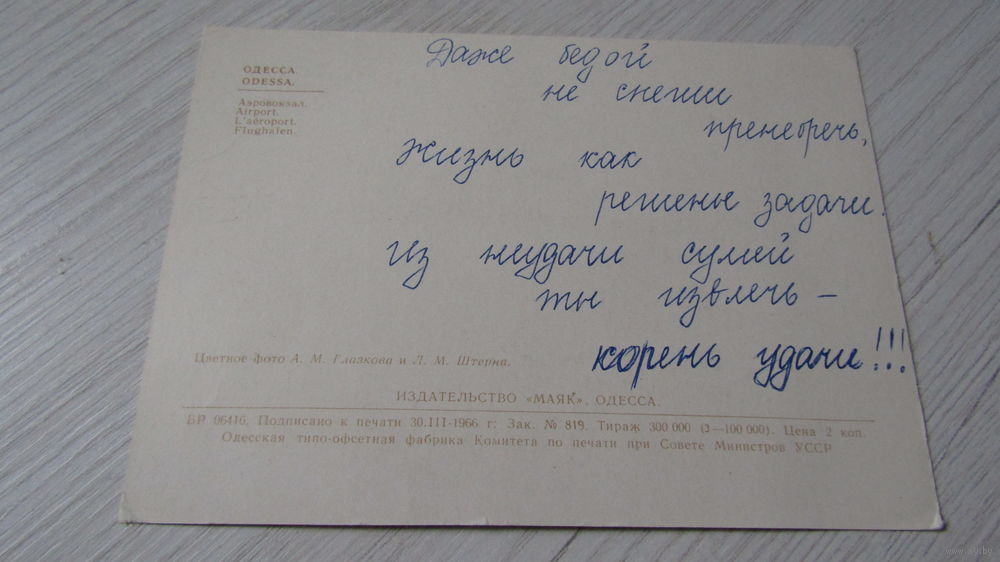 ОДЕССА
ODESSA.
Аэровокзал.
Airport.
L'aéroport.
Flughafen.
Даже бедой
не спеши
пренебречь,
Жизнь как
решенье задачи.
Из неудачи сумей
ты извлечь –
корень удачи!!!
Цветное фото А. М. Глазкова и Л. М. Штерна.
ИЗДАТЕЛЬСТВО «МАЯК», ОДЕССА.
БР 06416. Подписано к печати 30.III-1966 г. Зак. № 819. Тираж 300 000 (3—100 000). Цена 2 коп.
Одесская типо-офсетная фабрика Комитета по печати при Совете Министров УССР
www.ay.by